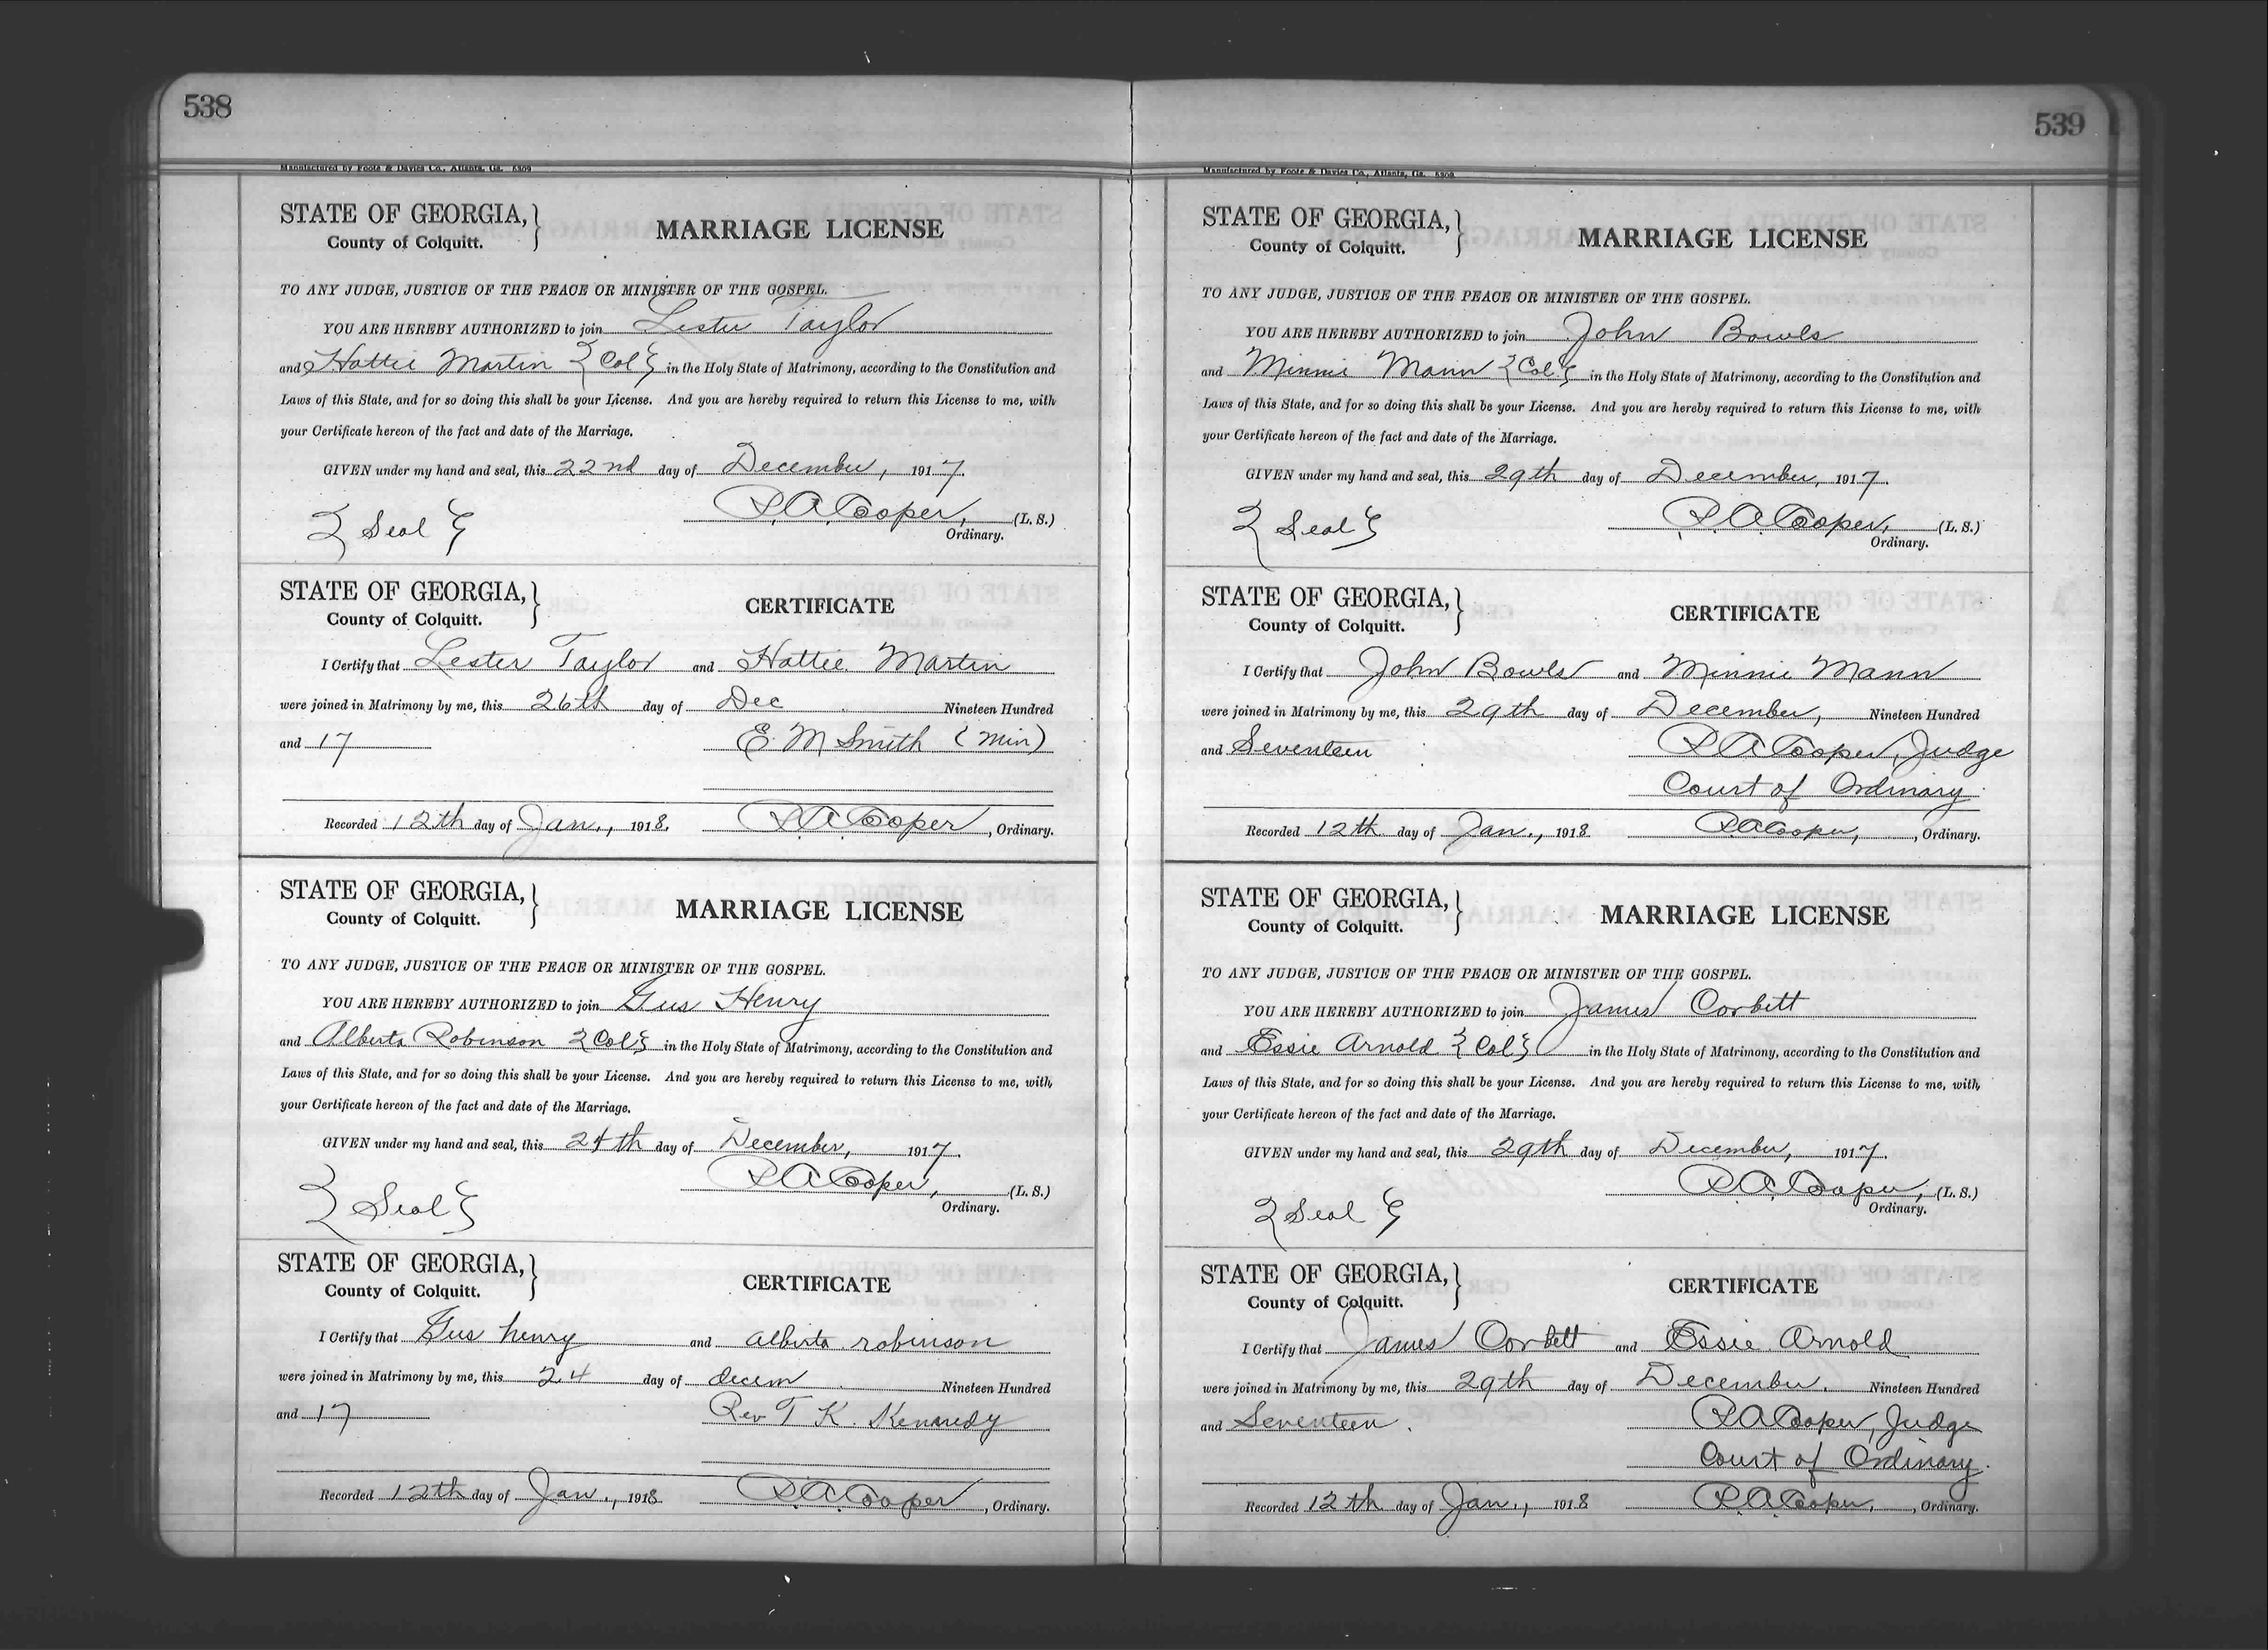 538
Manufactured by Foote & Davies Co., Atlanta, Ga. 5309
STATE OF GEORGIA,
County of Colquitt.
MARRIAGE LICENSE
TO ANY JUDGE, JUSTICE OF THE PEACE OR MINISTER OF THE GOSPEL.
YOU ARE HEREBY AUTHORIZED to join Lester Taylor
and Hattie Martin {Col} in the Holy State of Matrimony, according to the Constitution and
Laws of this State, and for so doing this shall be your License. And you are hereby required to return this License to me, with
your Certificate hereon of the fact and date of the Marriage.
GIVEN under my hand and seal, this 22nd day of December, 1917.
{Seal} P.A. Cooper, (L. S.)
Ordinary.
STATE OF GEORGIA,
County of Colquitt.
CERTIFICATE
I Certify that Lester Taylor and Hattie Martin
were joined in Matrimony by me, this 26th day of Dec Nineteen Hundred
and 17 E. M Smith (Min)
Recorded 12th day of Jan., 1918. P.A. Cooper, Ordinary.
STATE OF GEORGIA,
County of Colquitt.
MARRIAGE LICENSE
TO ANY JUDGE, JUSTICE OF THE PEACE OR MINISTER OF THE GOSPEL.
YOU ARE HEREBY AUTHORIZED to join Gus Henry
and Alberta Robinson {Col} in the Holy State of Matrimony, according to the Constitution and
Laws of this State, and for so doing this shall be your License. And you are hereby required to return this License to me, with
your Certificate hereon of the fact and date of the Marriage.
GIVEN under my hand and seal, this 24th day of December, 1917.
{Seal} P.A. Cooper, (L. S.)
Ordinary.
STATE OF GEORGIA,
County of Colquitt.
CERTIFICATE
I Certify that Gus henry and alberta robinson
were joined in Matrimony by me, this 24 day of decem Nineteen Hundred
and 17 Rev T K. Kennedy
Recorded 12th day of Jan., 1918 P.A. Cooper, Ordinary.
539
Manufactured by Foote & Davies Co., Atlanta, Ga. 5309
STATE OF GEORGIA,
County of Colquitt.
MARRIAGE LICENSE
TO ANY JUDGE, JUSTICE OF THE PEACE OR MINISTER OF THE GOSPEL.
YOU ARE HEREBY AUTHORIZED to join John Bowls
and Minnie Mann {Col} in the Holy State of Matrimony, according to the Constitution and
Laws of this State, and for so doing this shall be your License. And you are hereby required to return this License to me, with
your Certificate hereon of the fact and date of the Marriage.
GIVEN under my hand and seal, this 29th day of December, 1917.
{Seal} P.A. Cooper, (L. S.)
Ordinary.
STATE OF GEORGIA,
County of Colquitt.
CERTIFICATE
I Certify that John Bowls and Minnie Mann
were joined in Matrimony by me, this 29th day of December, Nineteen Hundred
and Seventeen P.A. Cooper, Judge
Court of Ordinary
Recorded 12th day of Jan., 1918 P.A. Cooper, , Ordinary.
STATE OF GEORGIA,
County of Colquitt.
MARRIAGE LICENSE
TO ANY JUDGE, JUSTICE OF THE PEACE OR MINISTER OF THE GOSPEL.
YOU ARE HEREBY AUTHORIZED to join James Corbett
and Essie Arnold {Col} in the Holy State of Matrimony, according to the Constitution and
Laws of this State, and for so doing this shall be your License. And you are hereby required to return this License to me, with
your Certificate hereon of the fact and date of the Marriage.
GIVEN under my hand and seal, this 29th day of December, 1917.
{Seal} P.A. Cooper, (L. S.)
Ordinary.
STATE OF GEORGIA,
County of Colquitt.
CERTIFICATE
I Certify that James Corbett and Essie Arnold
were joined in Matrimony by me, this 29th day of December. Nineteen Hundred
and Seventeen. P.A. Cooper, Judge
Court of Ordinary.
Recorded 12th day of Jan., 1918 P.A. Cooper, , Ordinary.